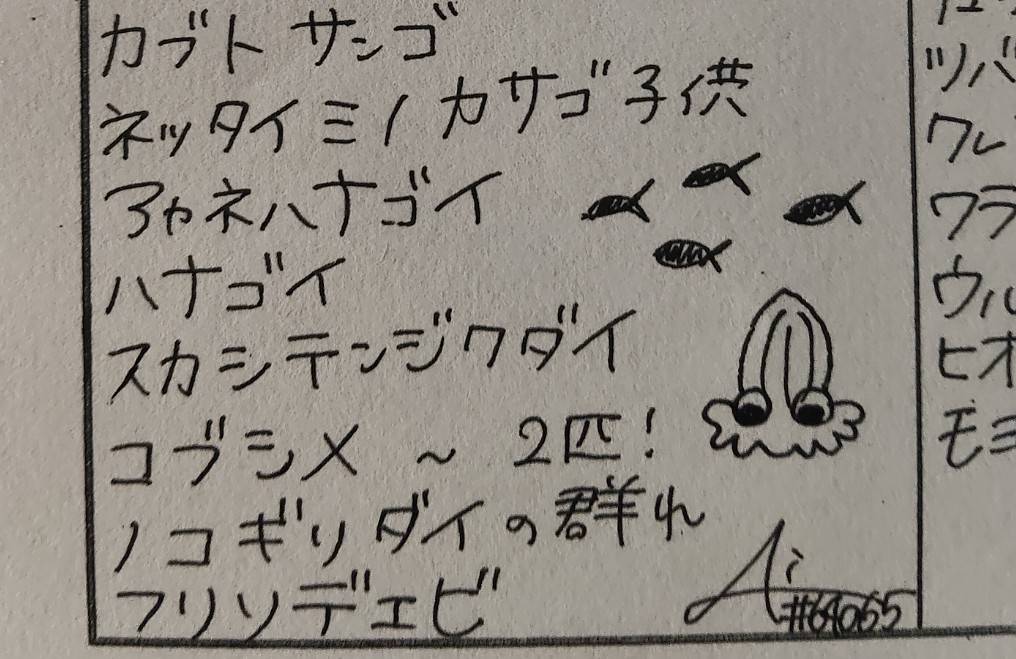 カブトサンゴ
ネッタイミノカサゴ子供
アカネハナゴイ
ハナゴイ
スカシテンジクダイ
コブシメ ~ 2匹!
ノコギリダイの群れ
フリソデエビ
Ai
#64065
ツバ
ワレ
ワラ
ウル
ヒオ
モヨ